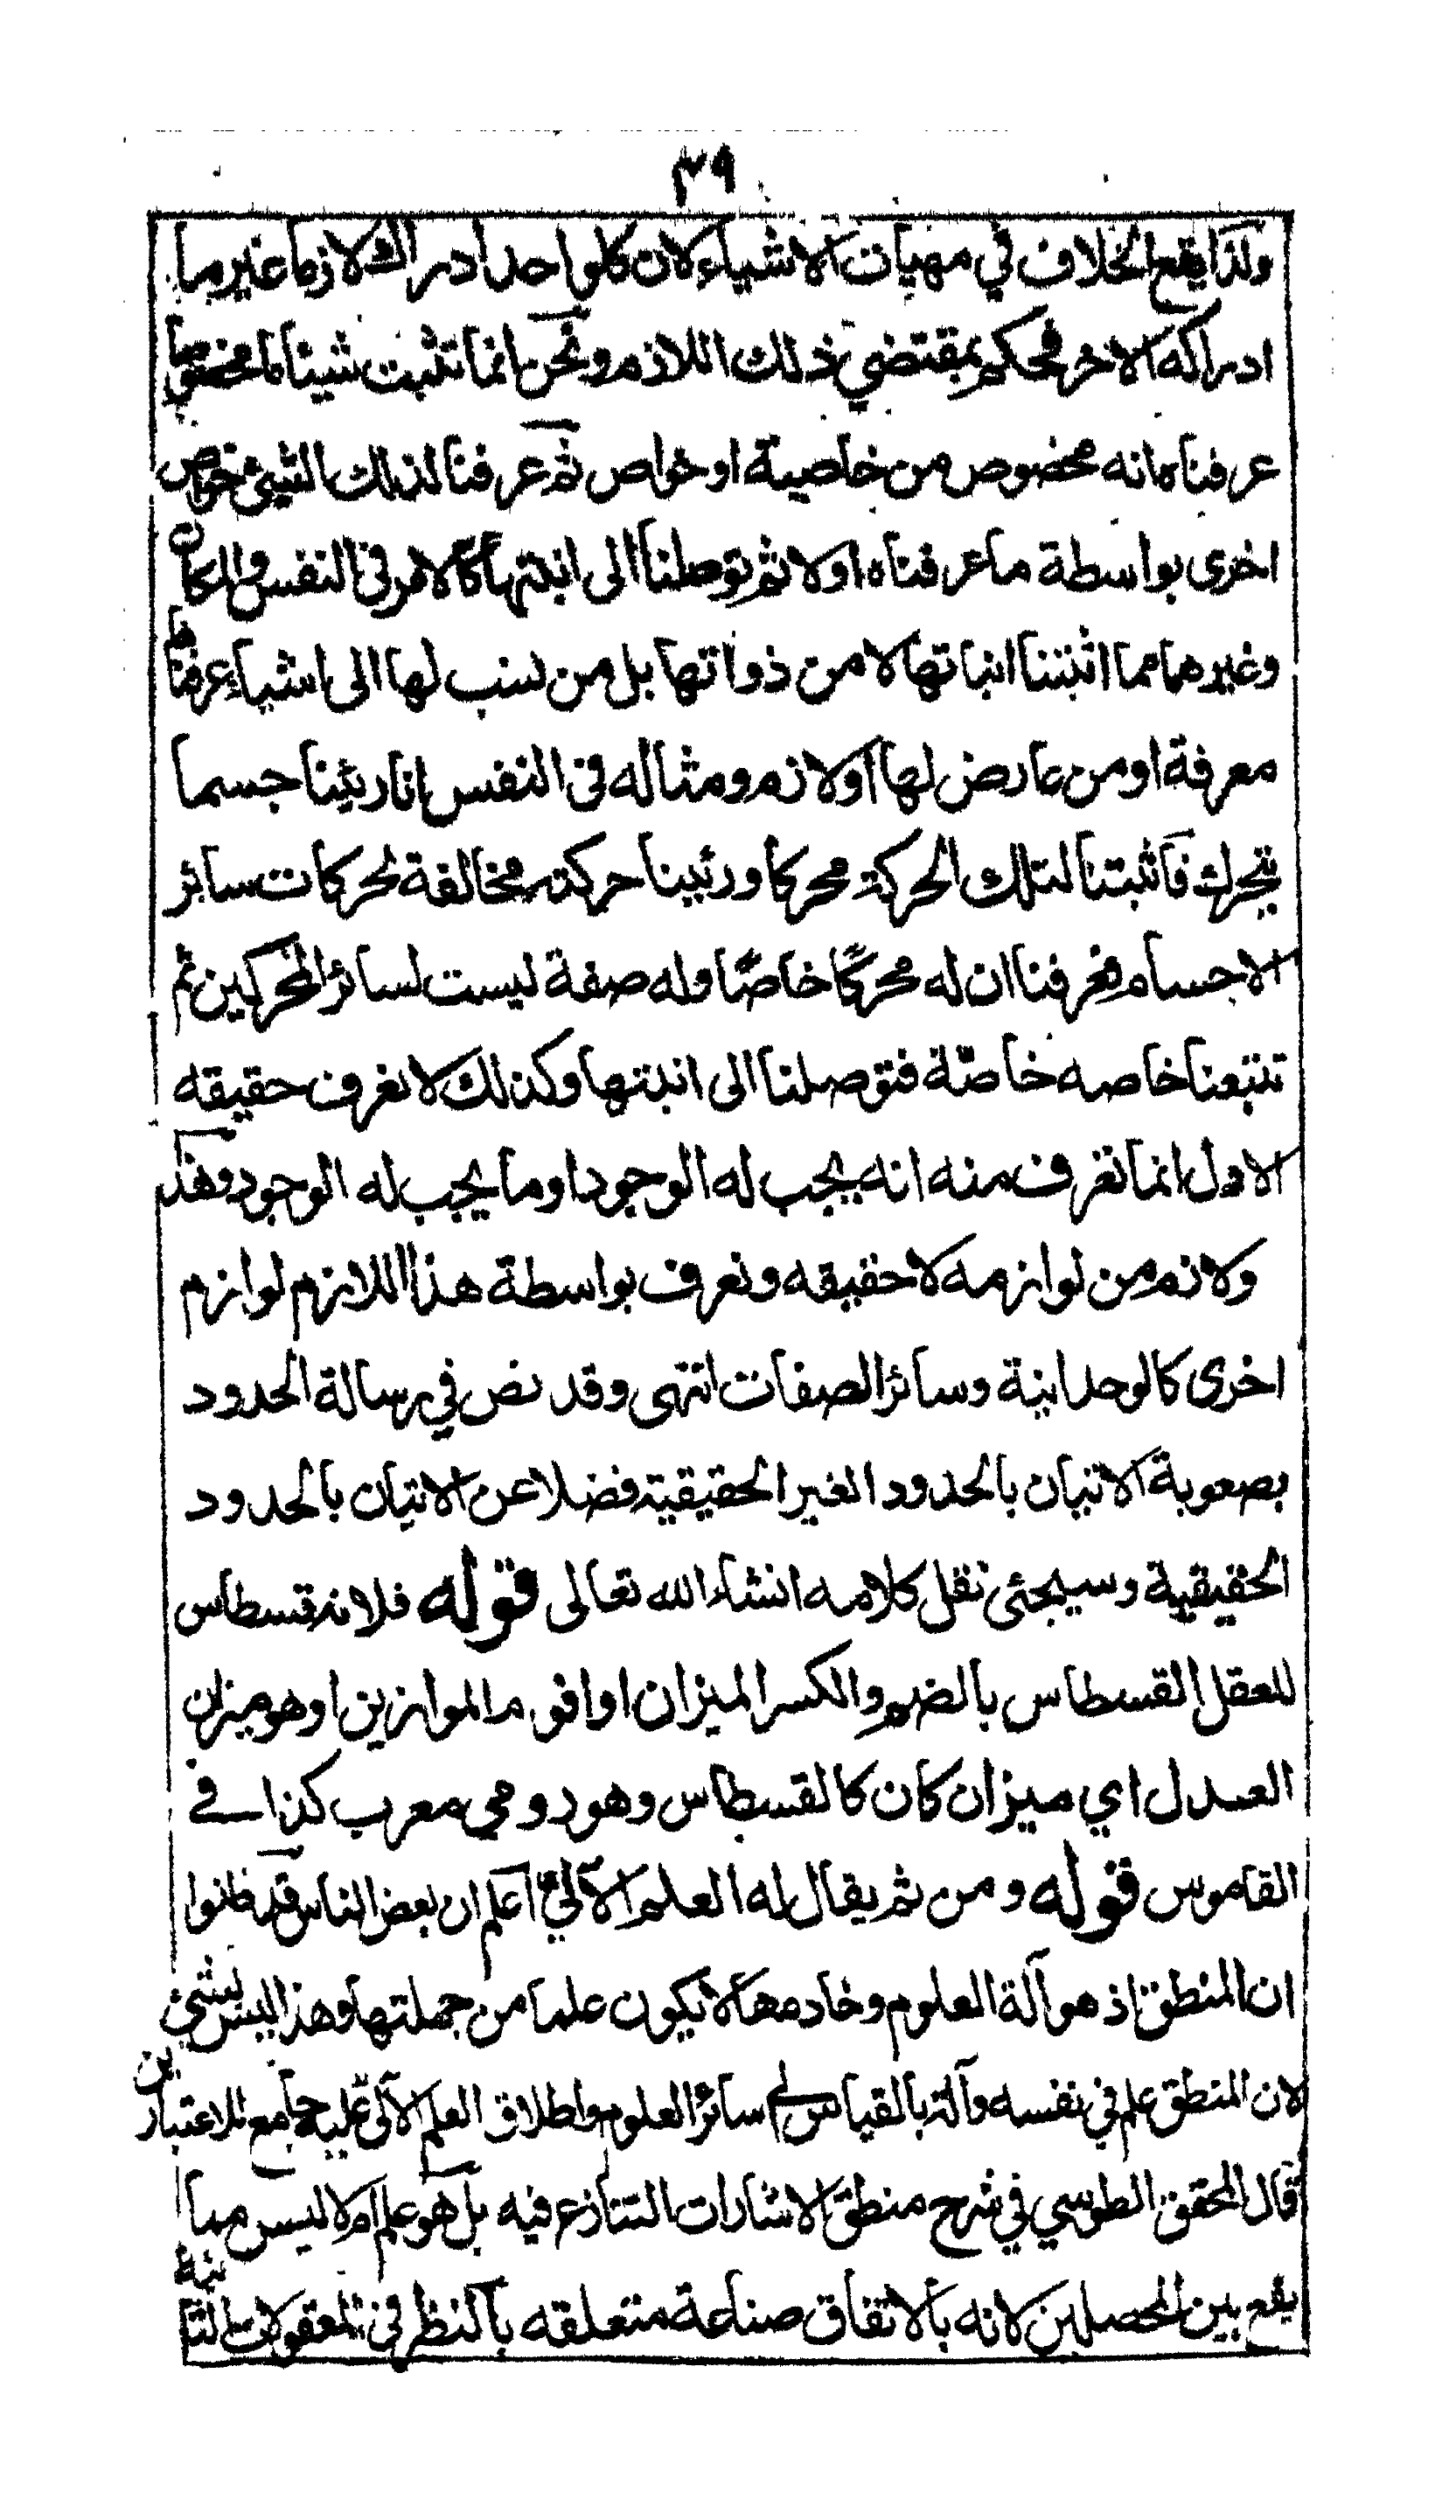 ٣٩
ولذا يقع الخلاف في مهيات الاشياء لان كل واحد ادرك لازما غير ما
ادراكه الاخر فحكم بمقتضي ذلك اللازم ونحن انما نثبت شيئا ما مخصوصا
عرفناه انه مخصوص من خاصية او خواص ثم عرفنا لذلك الشيئ خواص
اخرى بواسطة ما عرفناه اولا ثم توصلنا الى انيتها كالامر في النفس والمكان
وغيرهما مما اثبتنا انياتها لا من ذواتها بل من نسب لها الى اشياء عرفناها
معرفة او من عارض لها او لازم ومثاله في النفس انا رئينا جسما
يتحرك فاثبتنا لتلك الحركة محركا ورئينا حركته مخالفة لحركات سائر
الاجسام فعرفنا ان له محركا خاصا وله صفة ليست لسائر المحركين ثم
تتبعنا خاصه خاصة فتوصلنا الى انيتها وكذلك لا نعرف حقيقه
الاول انما نعرف منه انه يجب له الوجود او ما يجب له الوجود وهذا
ولازم من لوازمه لا حقيقه ونعرف بواسطة هذا اللازم لوازم
اخرى كالوحدانية وسائر الصفات انتهى وقد نص في رسالة الحدود
بصعوبة الاتيان بالحدود الغير الحقيقية فضلا عن الاتيان بالحدود
الحقيقية وسيجئى نقل كلامه انشاء الله تعالى قوله فلانه قسطاس
للعقل القسطاس بالضم والكسر الميزان او اقوم الموازين او هو ميزان
العدل اي ميزان كان كالقسطاس وهو رومي معرب كذا في
القاموس قوله ومن ثم يقال له العلم الآلي اعلم ان بعض الناس قد ظنوا
ان المنطق اذ هو آلة العلوم وخادمها لا يكون علما من جملتها وهذا ليس بشيئ
لان المنطق علم في نفسه وآلة بالقياس الى سائر العلوم واطلاق العلم الآلى عليه جامع للاعتبارين
قال المحقق الطوسي في شرح منطق الاشارات التنازع فيه بل هو علم ام لا ليس مما
يقع بين المحصلين لانه بالاتفاق صناعة متعلقه بالنظر في المعقولات الثانية